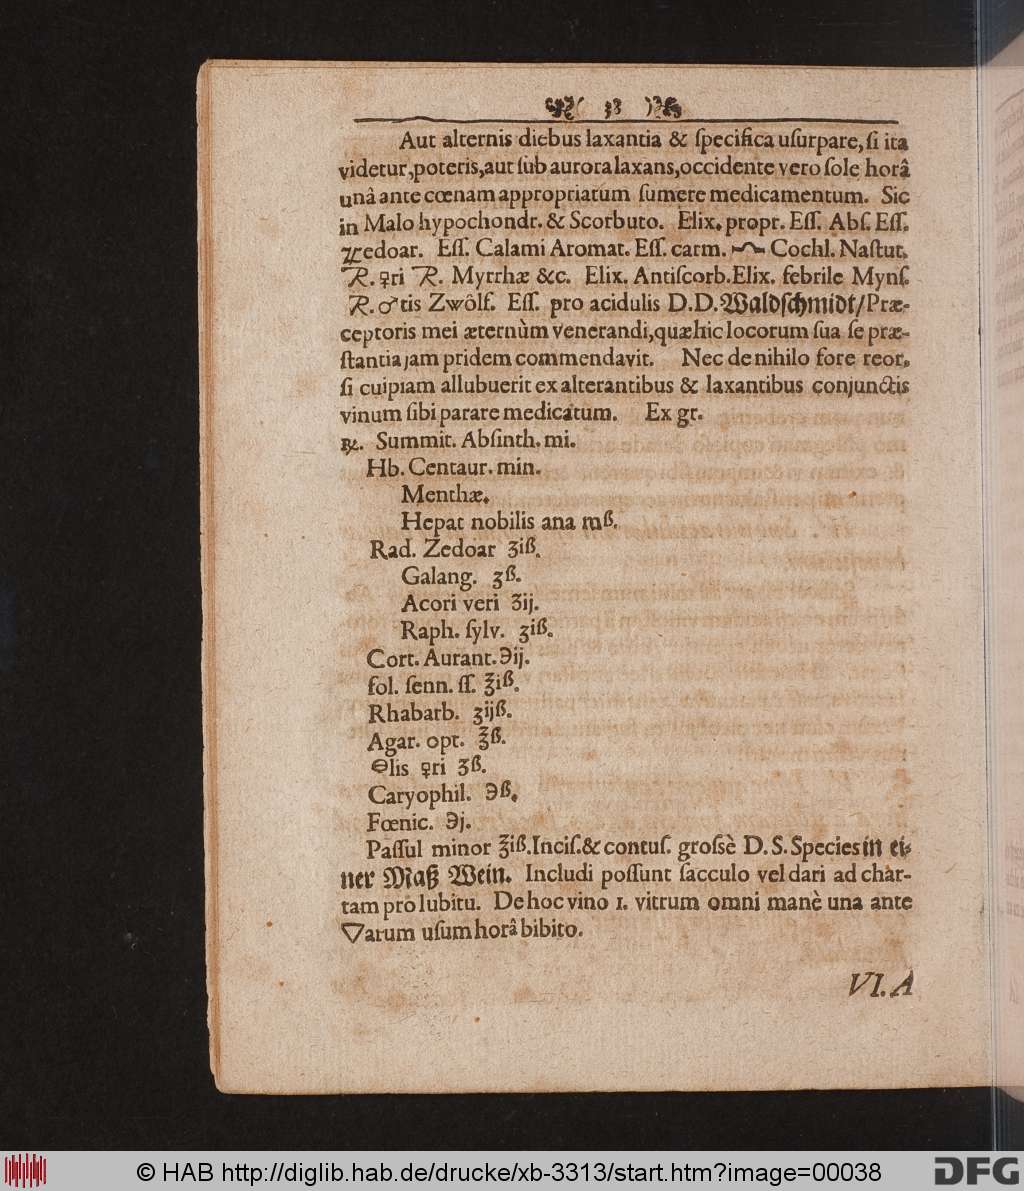 33
Aut alternis diebus laxantia & ſpecifica uſurpare, ſi ita
videtur, poteris, aut ſub aurora laxans, occidente vero ſole horâ
unâ ante cœnam appropriatum ſumere medicamentum. Sic
in Malo hypochondr. & Scorbuto. Elix. propr. Eſſ. Abſ. Eſſ.
zedoar. Eſſ. Calami Aromat. Eſſ. carm. Cochl. Naſtut.
℞. ♀ri ℞. Myrrhæ &c. Elix. Antiſcorb. Elix. febrile Mynſ.
℞. ♂tis Zwôlf. Eſſ. pro acidulis D. D. Waldſchmidt/ Præ-
ceptoris mei æternùm venerandi, quæ hic locorum ſua ſe præ-
ſtantia jam pridem commendavit. Nec de nihilo fore reor,
ſi cuipiam allubuerit ex alterantibus & laxantibus conjunctis
vinum ſibi parare medicatum. Ex gr.
℞. Summit. Abſinth. mi.
Hb. Centaur. min.
Menthæ.
Hepat nobilis ana mß.
Rad. Zedoar ʒiß.
Galang. ʒß.
Acori veri ʒij.
Raph. ſylv. ʒiß.
Cort. Aurant. ℈ij.
fol. ſenn. ſſ. ℥iß.
Rhabarb. ʒijß.
Agar. opt. ℥ß.
🜔lis ♀ri ʒß.
Caryophil. ℈ß.
Fœnic. ℈j.
Paſſul minor ℥iß. Inciſ. & contuſ. groſsè D. S. Species in ei-
ner Maß Wein. Includi poſſunt ſacculo vel dari ad char-
tam pro lubitu. De hoc vino 1. vitrum omni manè una ante
▽arum uſum horâ bibito.
VI. A
© HAB http://diglib.hab.de/drucke/xb-3313/start.htm?image=00038
DFG